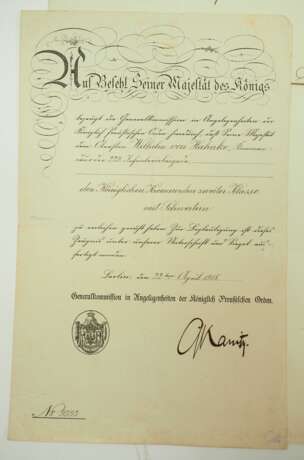 Auf Befehl Seiner Majestät des Königs
bezeugt die Generalkommission in Angelegenheiten der
Königlich Preußischen Orden hierdurch, daß Seine Majestät
dem Obersten Wilhelm von Hahnke,
der 223. Infanteriebrigade
den Königlichen Kronenorden zweiter Klasse
mit Schwertern
zu verleihen geruht haben. Zur Beglaubigung ist dieses
Zeugnis unter unserer Unterschrift und Siegel aus-
gefertigt worden.
Berlin, den 22ten April 1918
Generalkommission in Angelegenheiten der Königlich Preußischen Orden.